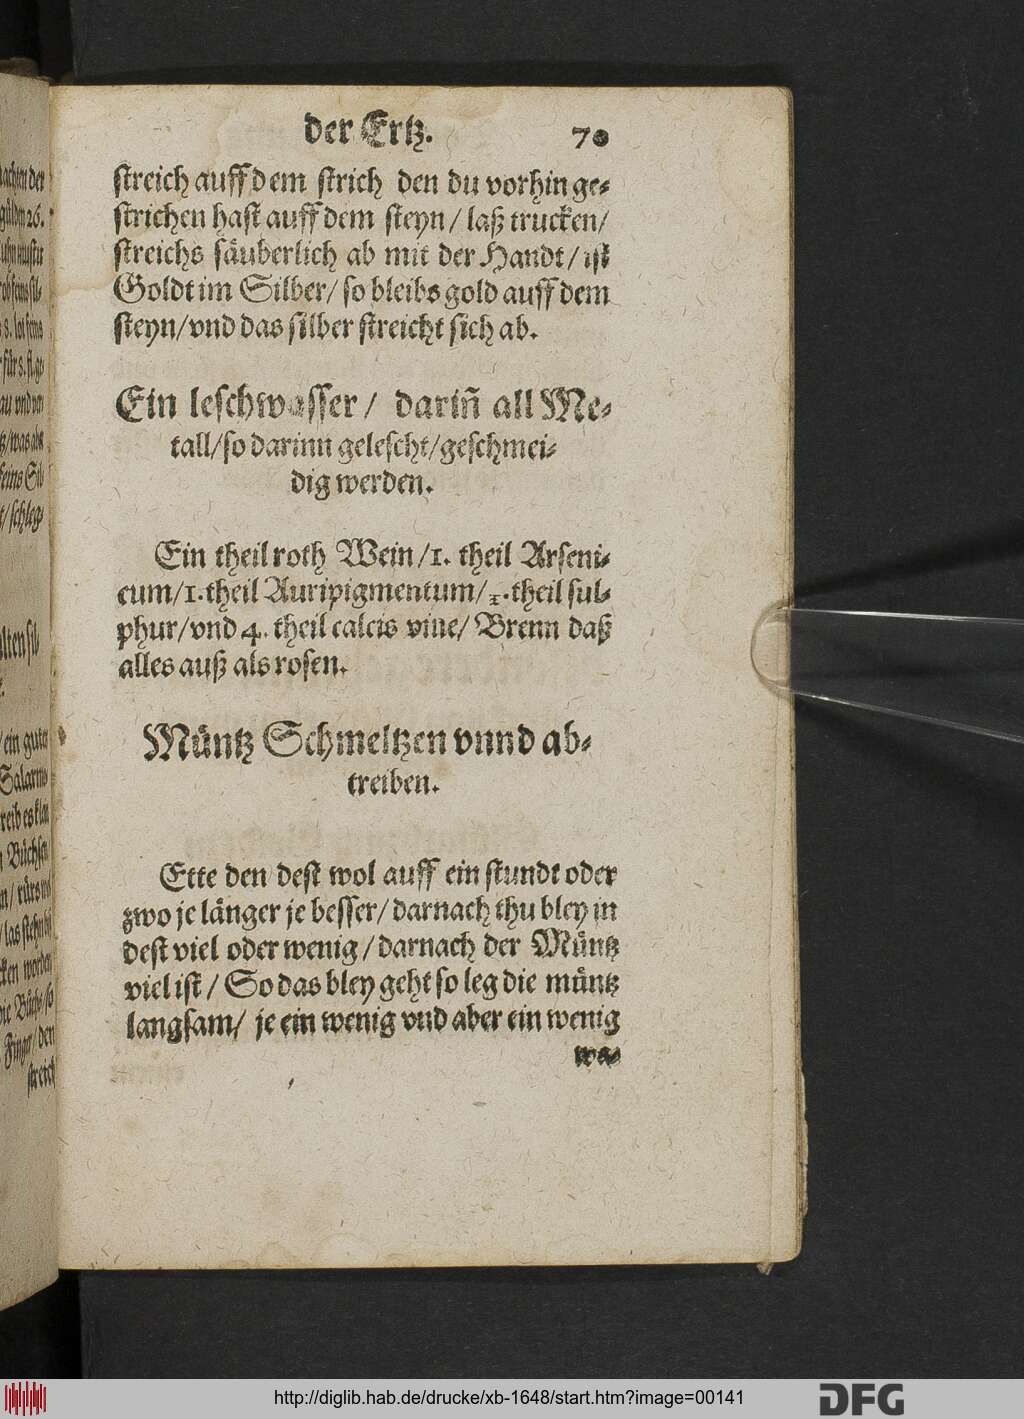 der Ertz. 70
streich auff dem strich den du vorhin ge⸗
strichen hast auff dem steyn/ laß trucken/
streichs säuberlich ab mit der Handt/ ist
Goldt im Silber/ so bleibs gold auff dem
steyn/ vnd das silber streicht sich ab.
Ein leschwasser/ dariñ all Me⸗
tall/ so darinn gelescht/ geschmei⸗
dig werden.
Ein theil roth Wein/ 1. theil Arseni⸗
cum/ 1. theil Auripigmentum/ 1. theil sul⸗
phur/ vnd 4. theil calcis viue/ Brenn daß
alles auß als rosen.
Müntz Schmeltzen vnnd ab⸗
treiben.
Ette den dest wol auff ein stundt oder
zwo je länger je besser/ darnach thu bley in
dest viel oder wenig/ darnach der Müntz
viel ist/ So das bley geht so leg die müntz
langsam/ je ein wenig vnd aber ein wenig
we⸗
http://diglib.hab.de/drucke/xb-1648/start.htm?image=00141
DFG